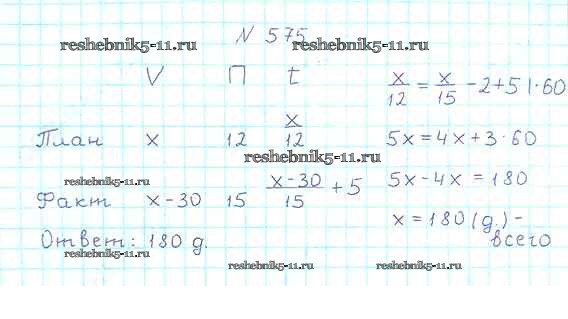 N 575
reshebnik5-11.ru reshebnik5-11.ru
V П t
План x 12 x/12
reshebnik5-11.ru
reshebnik5-11.ru
Факт x-30 15 x-30/15 + 5
Ответ: 180 д.
reshebnik5-11.ru
reshebnik5-11.ru
x/12 = x/15 -2+5 |·60
5x=4x+3·60
5x-4x=180
x=180(д.)-
всего
reshebnik5-11.ru